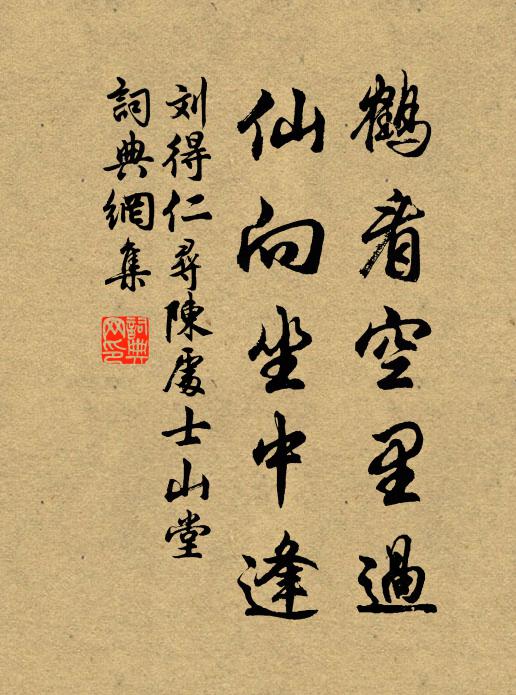 鶴看空里過
仙向坐中逢
刘得仁尋陳處士山堂
詞典網集
詞典網印